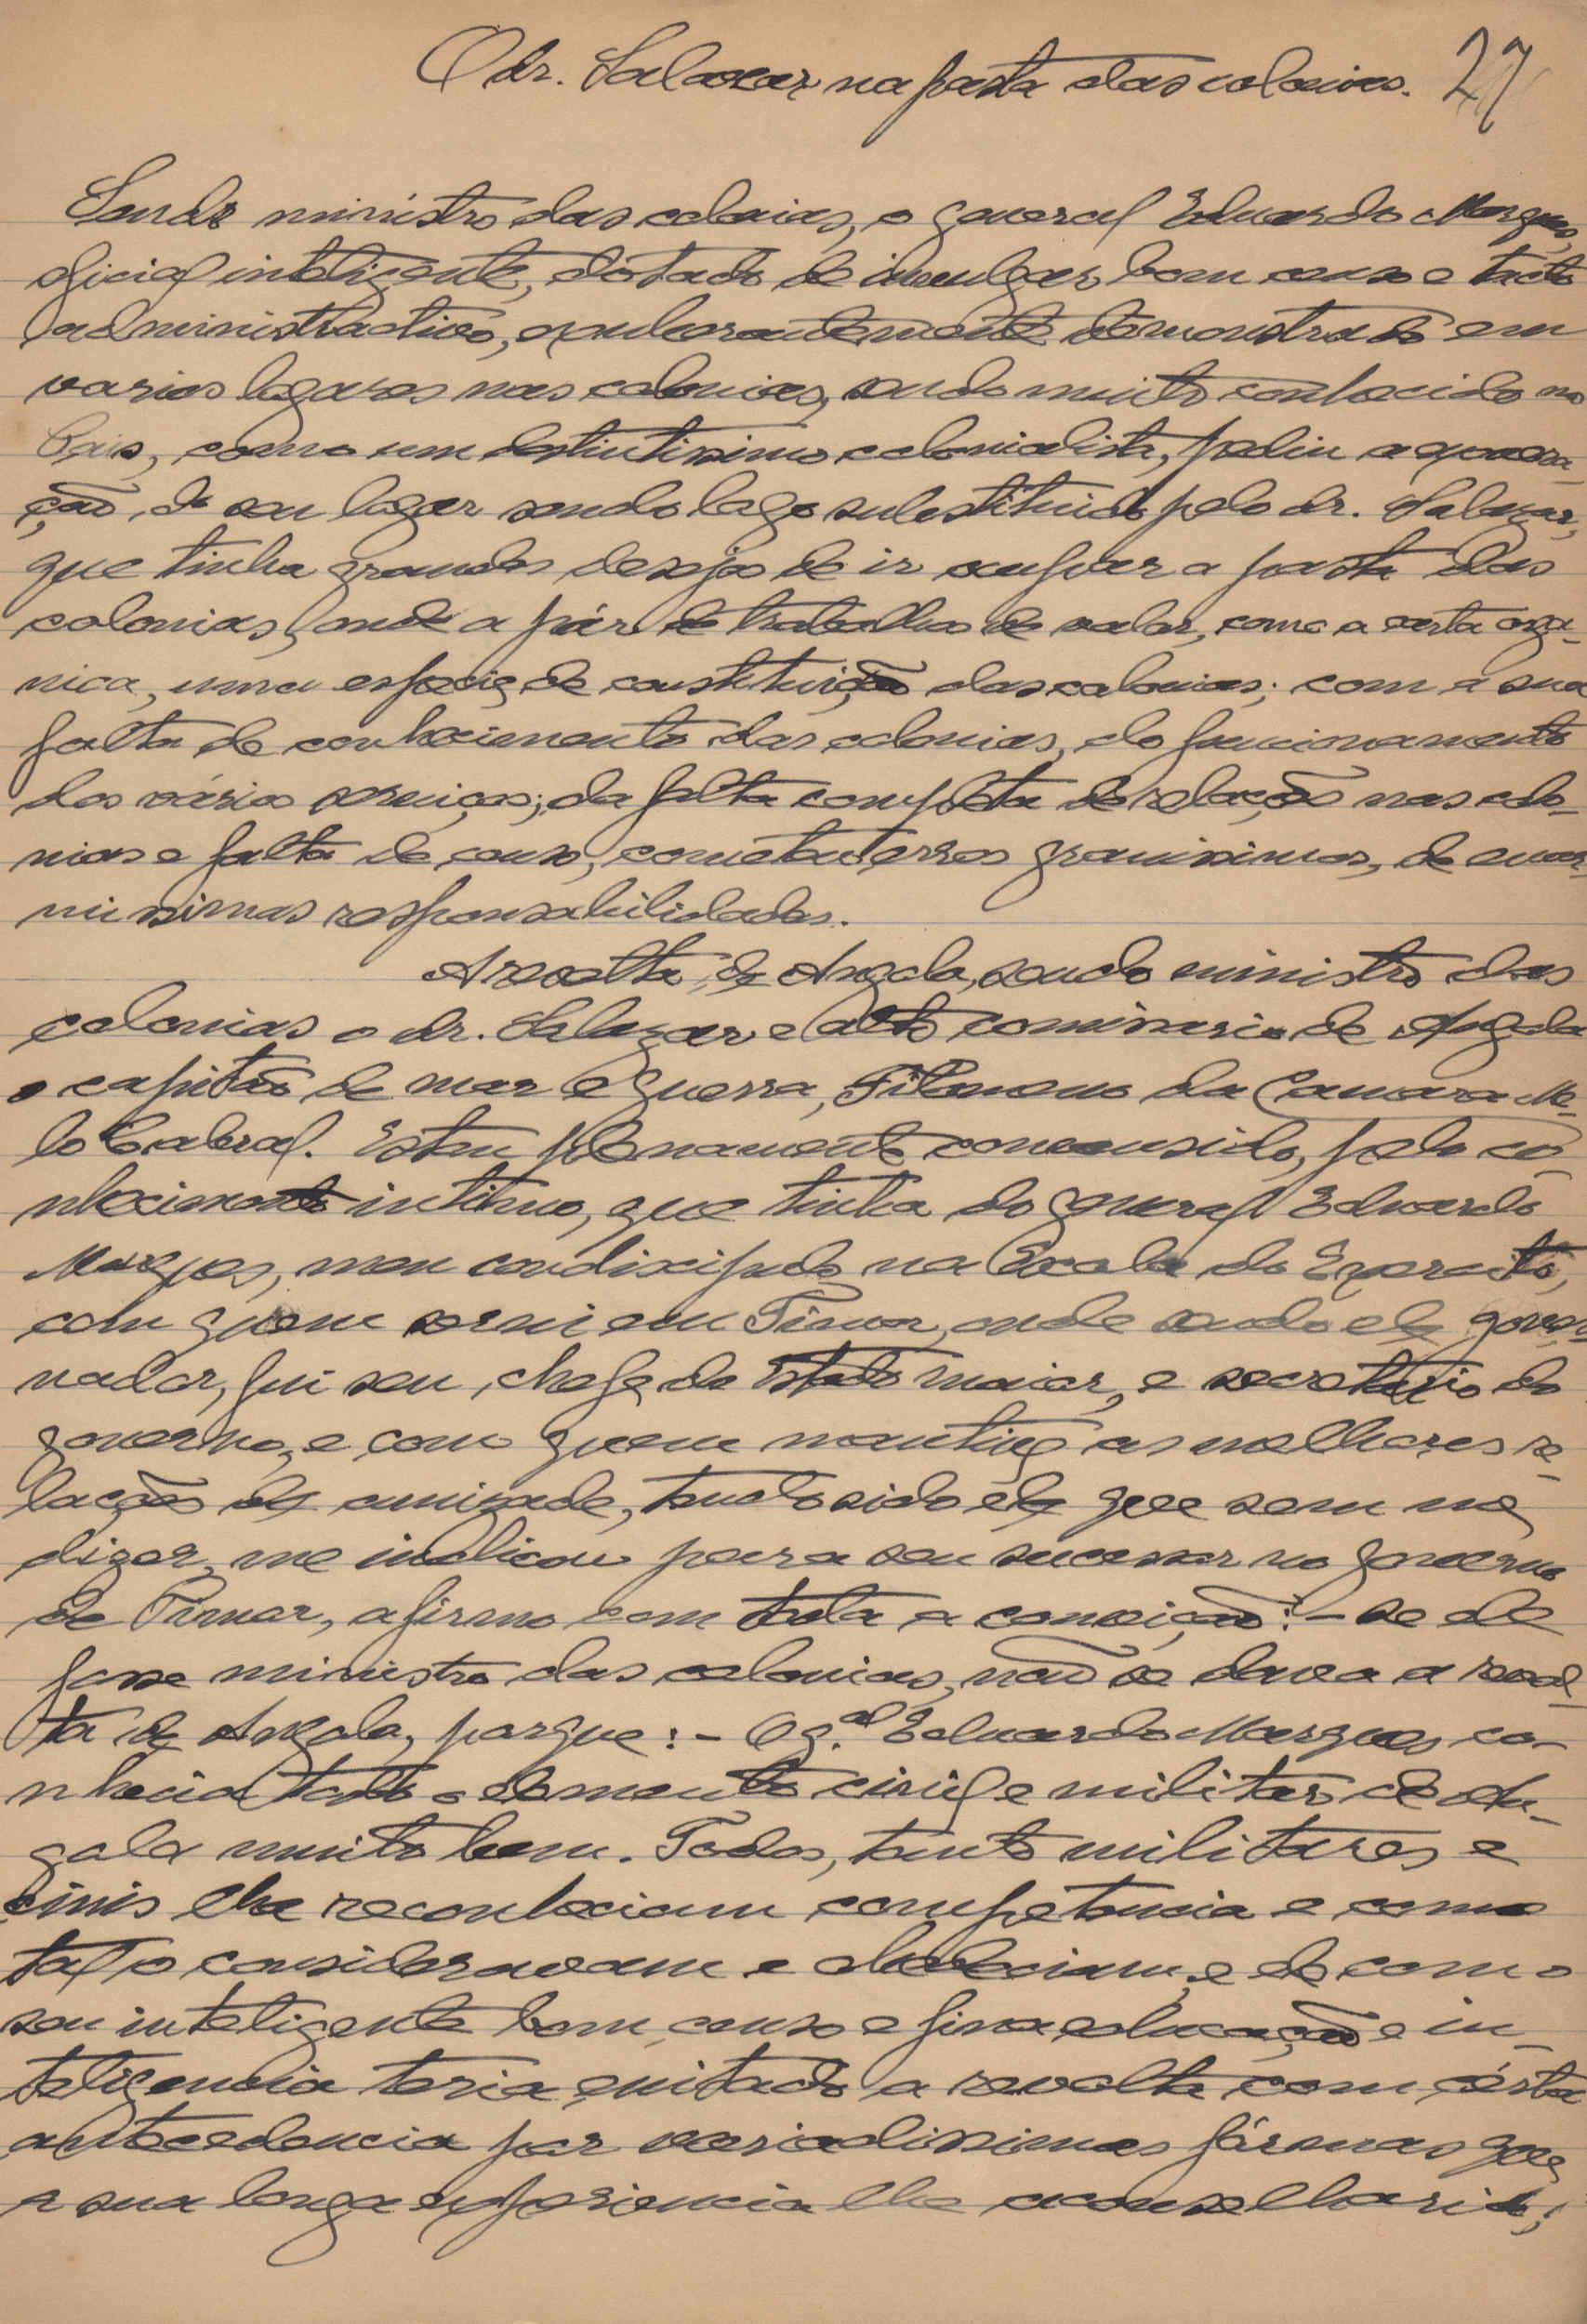 O dr. Salazar na pasta das colonias. 27
Sendo ministro das colonias, o general Eduardo Marques,
oficial inteligente, dotado de invulgar bom censo e tacto
administractivo, exuberantemente demonstrado em
varios logares nas colonias, sendo muito conhecido no
País, como um destintissimo colonialista, pediu a exonera-
ção, do seu logar sendo logo substituido pelo dr. Salazar,
que tinha grandes desejos de ir ocupar a pasta das
colonias, onde a pár de trabalhos de valor, como a carta orgâ-
nica, uma especie de constituição das colonias; com a sua
falta de conhecimento das colonias, do funcionamento
dos vários serviços; da falta completa de relações nas colo-
nias e falta de censo, cometeu erros gravissimos, de enor-
missimas responsabilidades.
A revolta de Angola, sendo ministro das
colonias o dr. Salazar e alto comissario de Angola
o capitão de mar e guerra, Filomeno da Camara Me-
lo Cabral. Estou plenamente convensido, pelo co-
nhecimento intimo, que tinha do general Eduardo
Marques, meu condiscipulo na Escola do Exercito,
com quem servi em Timor, onde sendo ele gover-
nador, fui seu chefe do Estado maior, e secretario do
governo, e com quem mantive as melhores re-
lações de amizade, tendo sido ele que sem me
dizer, me indicou para seu sucessor no governo
de Timor, afirmo com toda a convição: - se ele
fosse ministro das colonias, não se dava a revol-
ta de Angola, porque: - O g.al Eduardo Marques co-
nhecia todo o elemento civil e militar de An-
gola muito bem. Todos, tanto militares e
civis lhe reconheciam competencia e como
tal o consideravam e obedeciam, e ele com o
seu inteligente bom censo e fina educação e in-
teligencia teria evitado a revolta com cérta
antecedencia por variadissimas fórmas que
a sua longa experiencia lhe aconselharia;